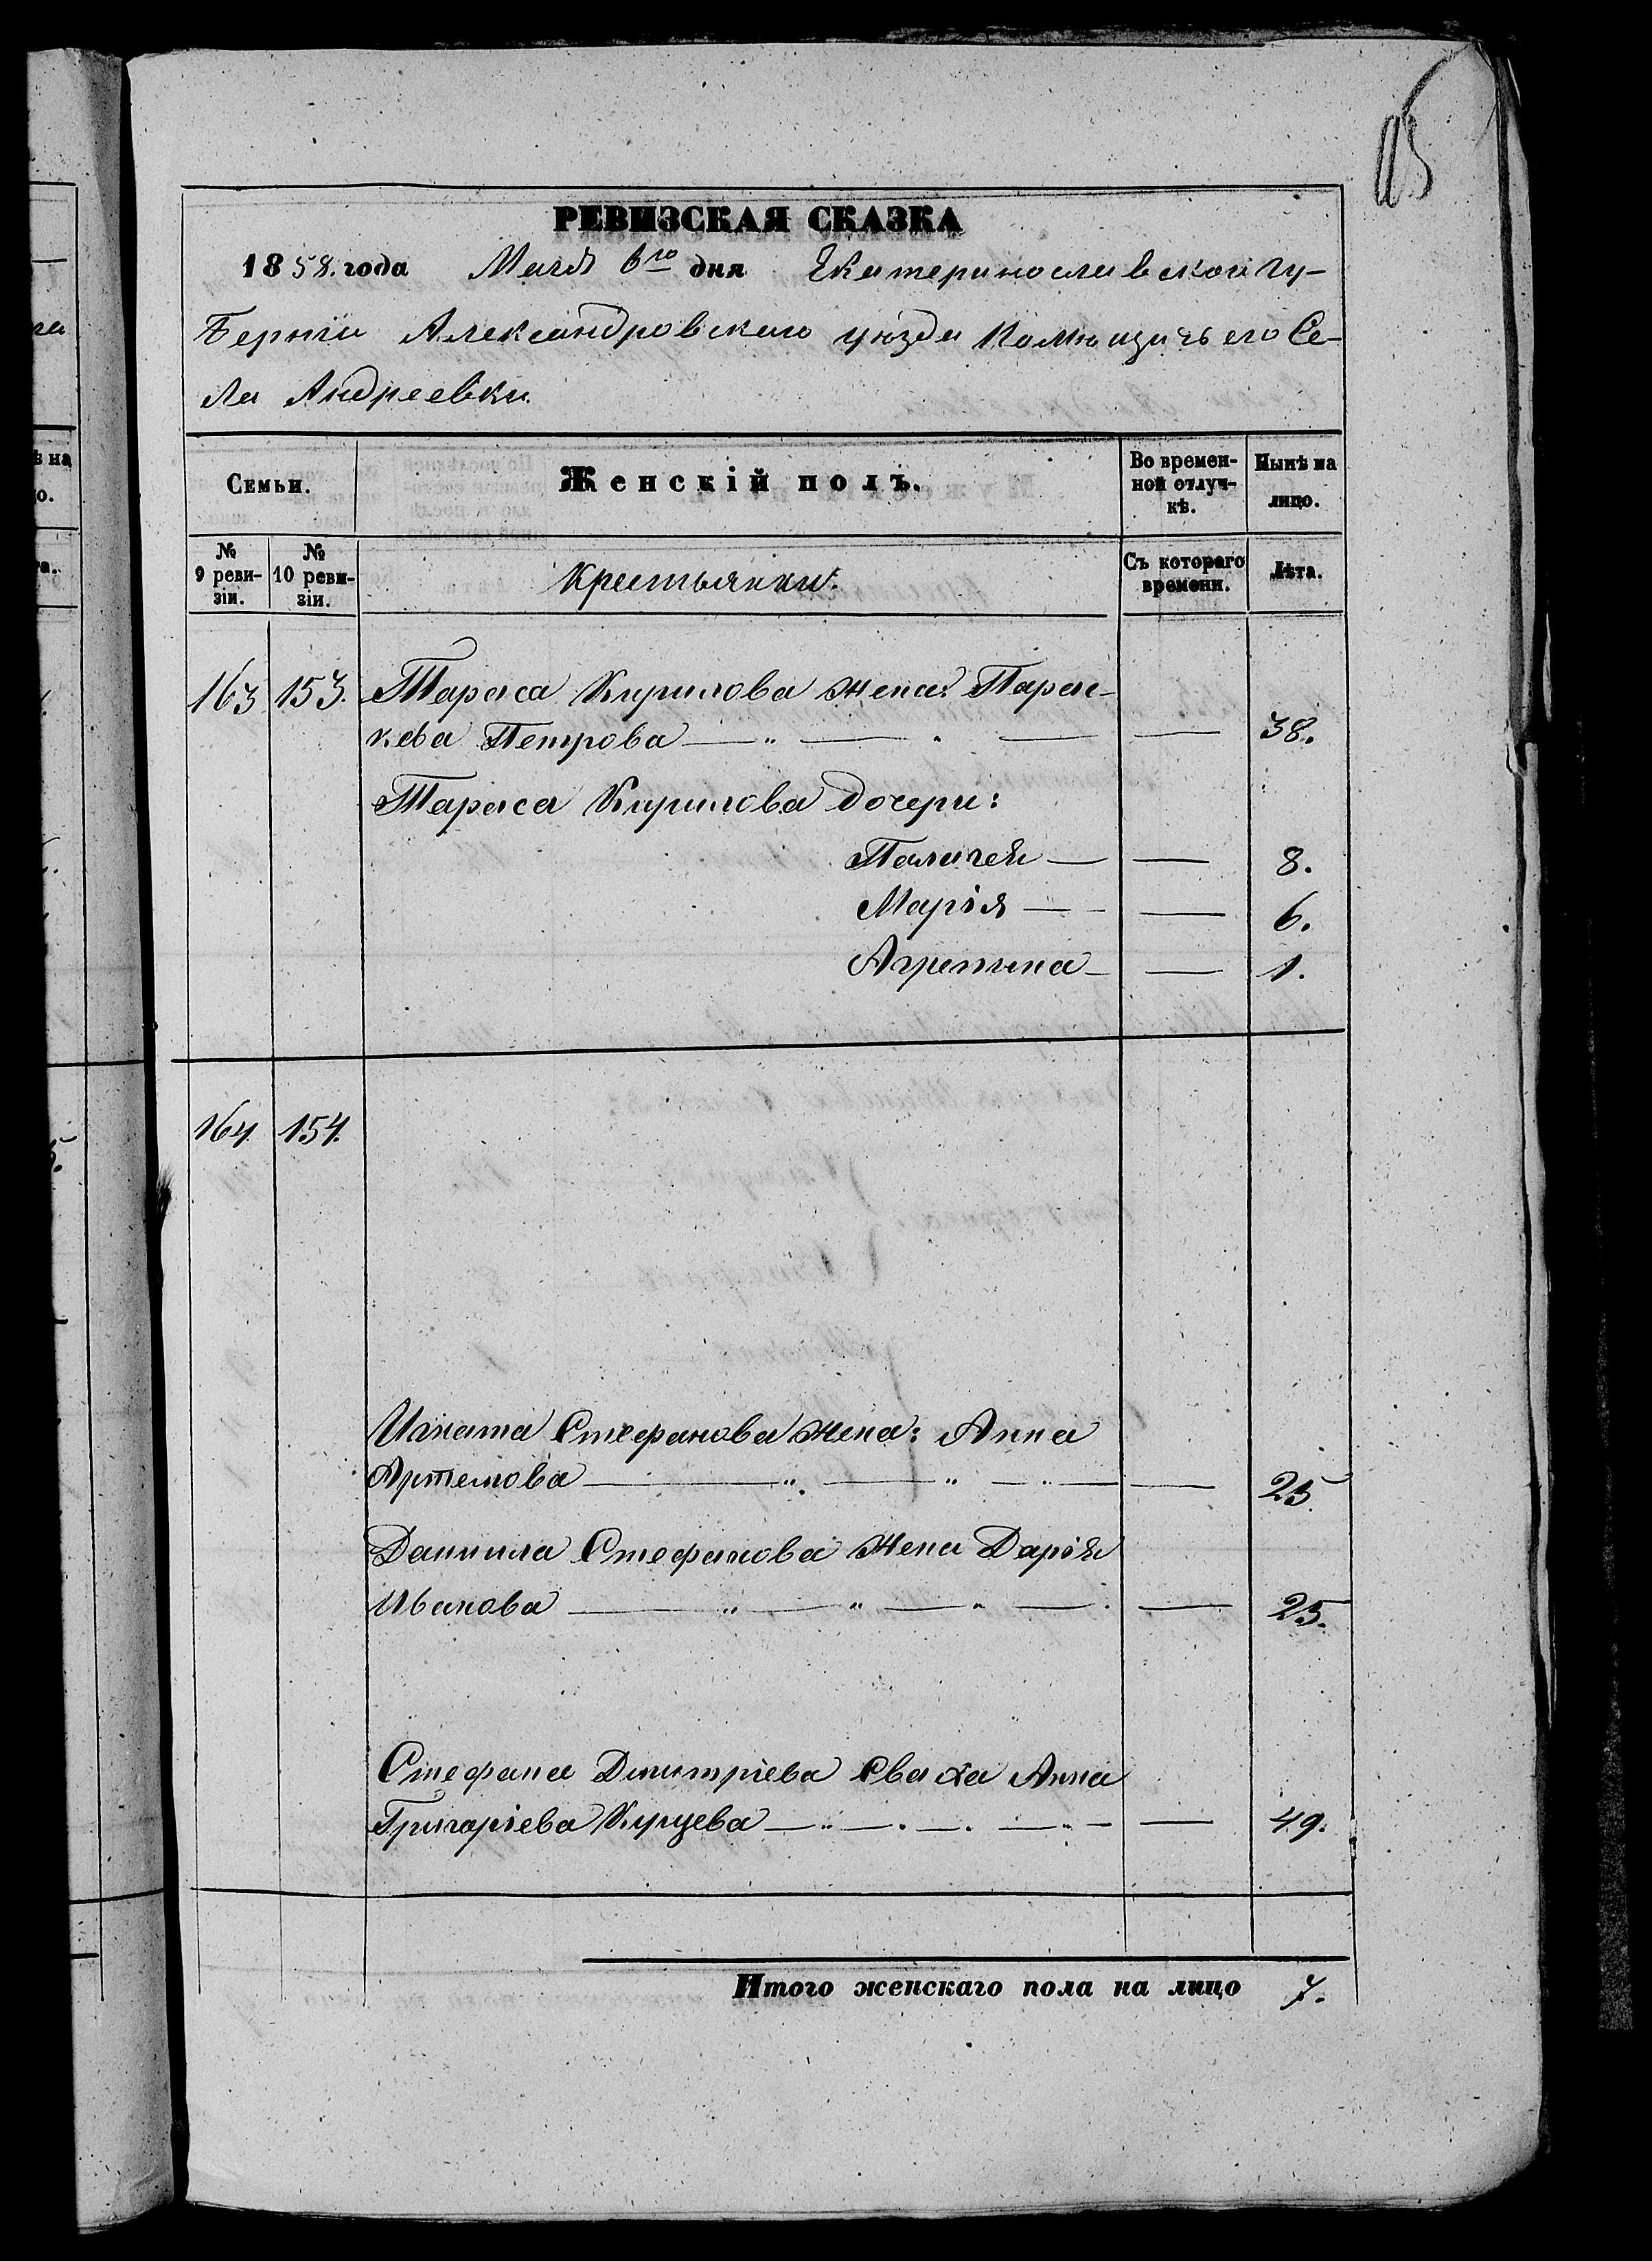 115
РЕВИЗСКАЯ СКАЗКА
1858. года Маія 6го дня Екатеринославской гу-
берніи Александровскаго уѣзда помѣщичьего Се-
ла Андреевки
Семьи. Женскій полъ. Во времен-ной отлуч-кѣ. Нынѣ на лицо.
№ 9 реви-зіи. № 10 реви-зіи. Крестьянки: Съ котораго времени. Лѣта.
163 153. Тараса Кирилова жена: Парас-
кева Петрова — „ — „ — — 38.
Тараса Кирилова дочери:
Палагея — — 8.
Марія — — 6.
Агрепина — — 1.
164 154.
Игната Стефанова жена: Анна
Артемова — „ — „ — — 25
Даниила Стефанова жена Дарія
Иванова — „ — „ — „ — — 25.
Стефана Димитріева сваха Анна
Григоріева Купцева — „ — — 49.
Итого женскаго пола на лицо 7.